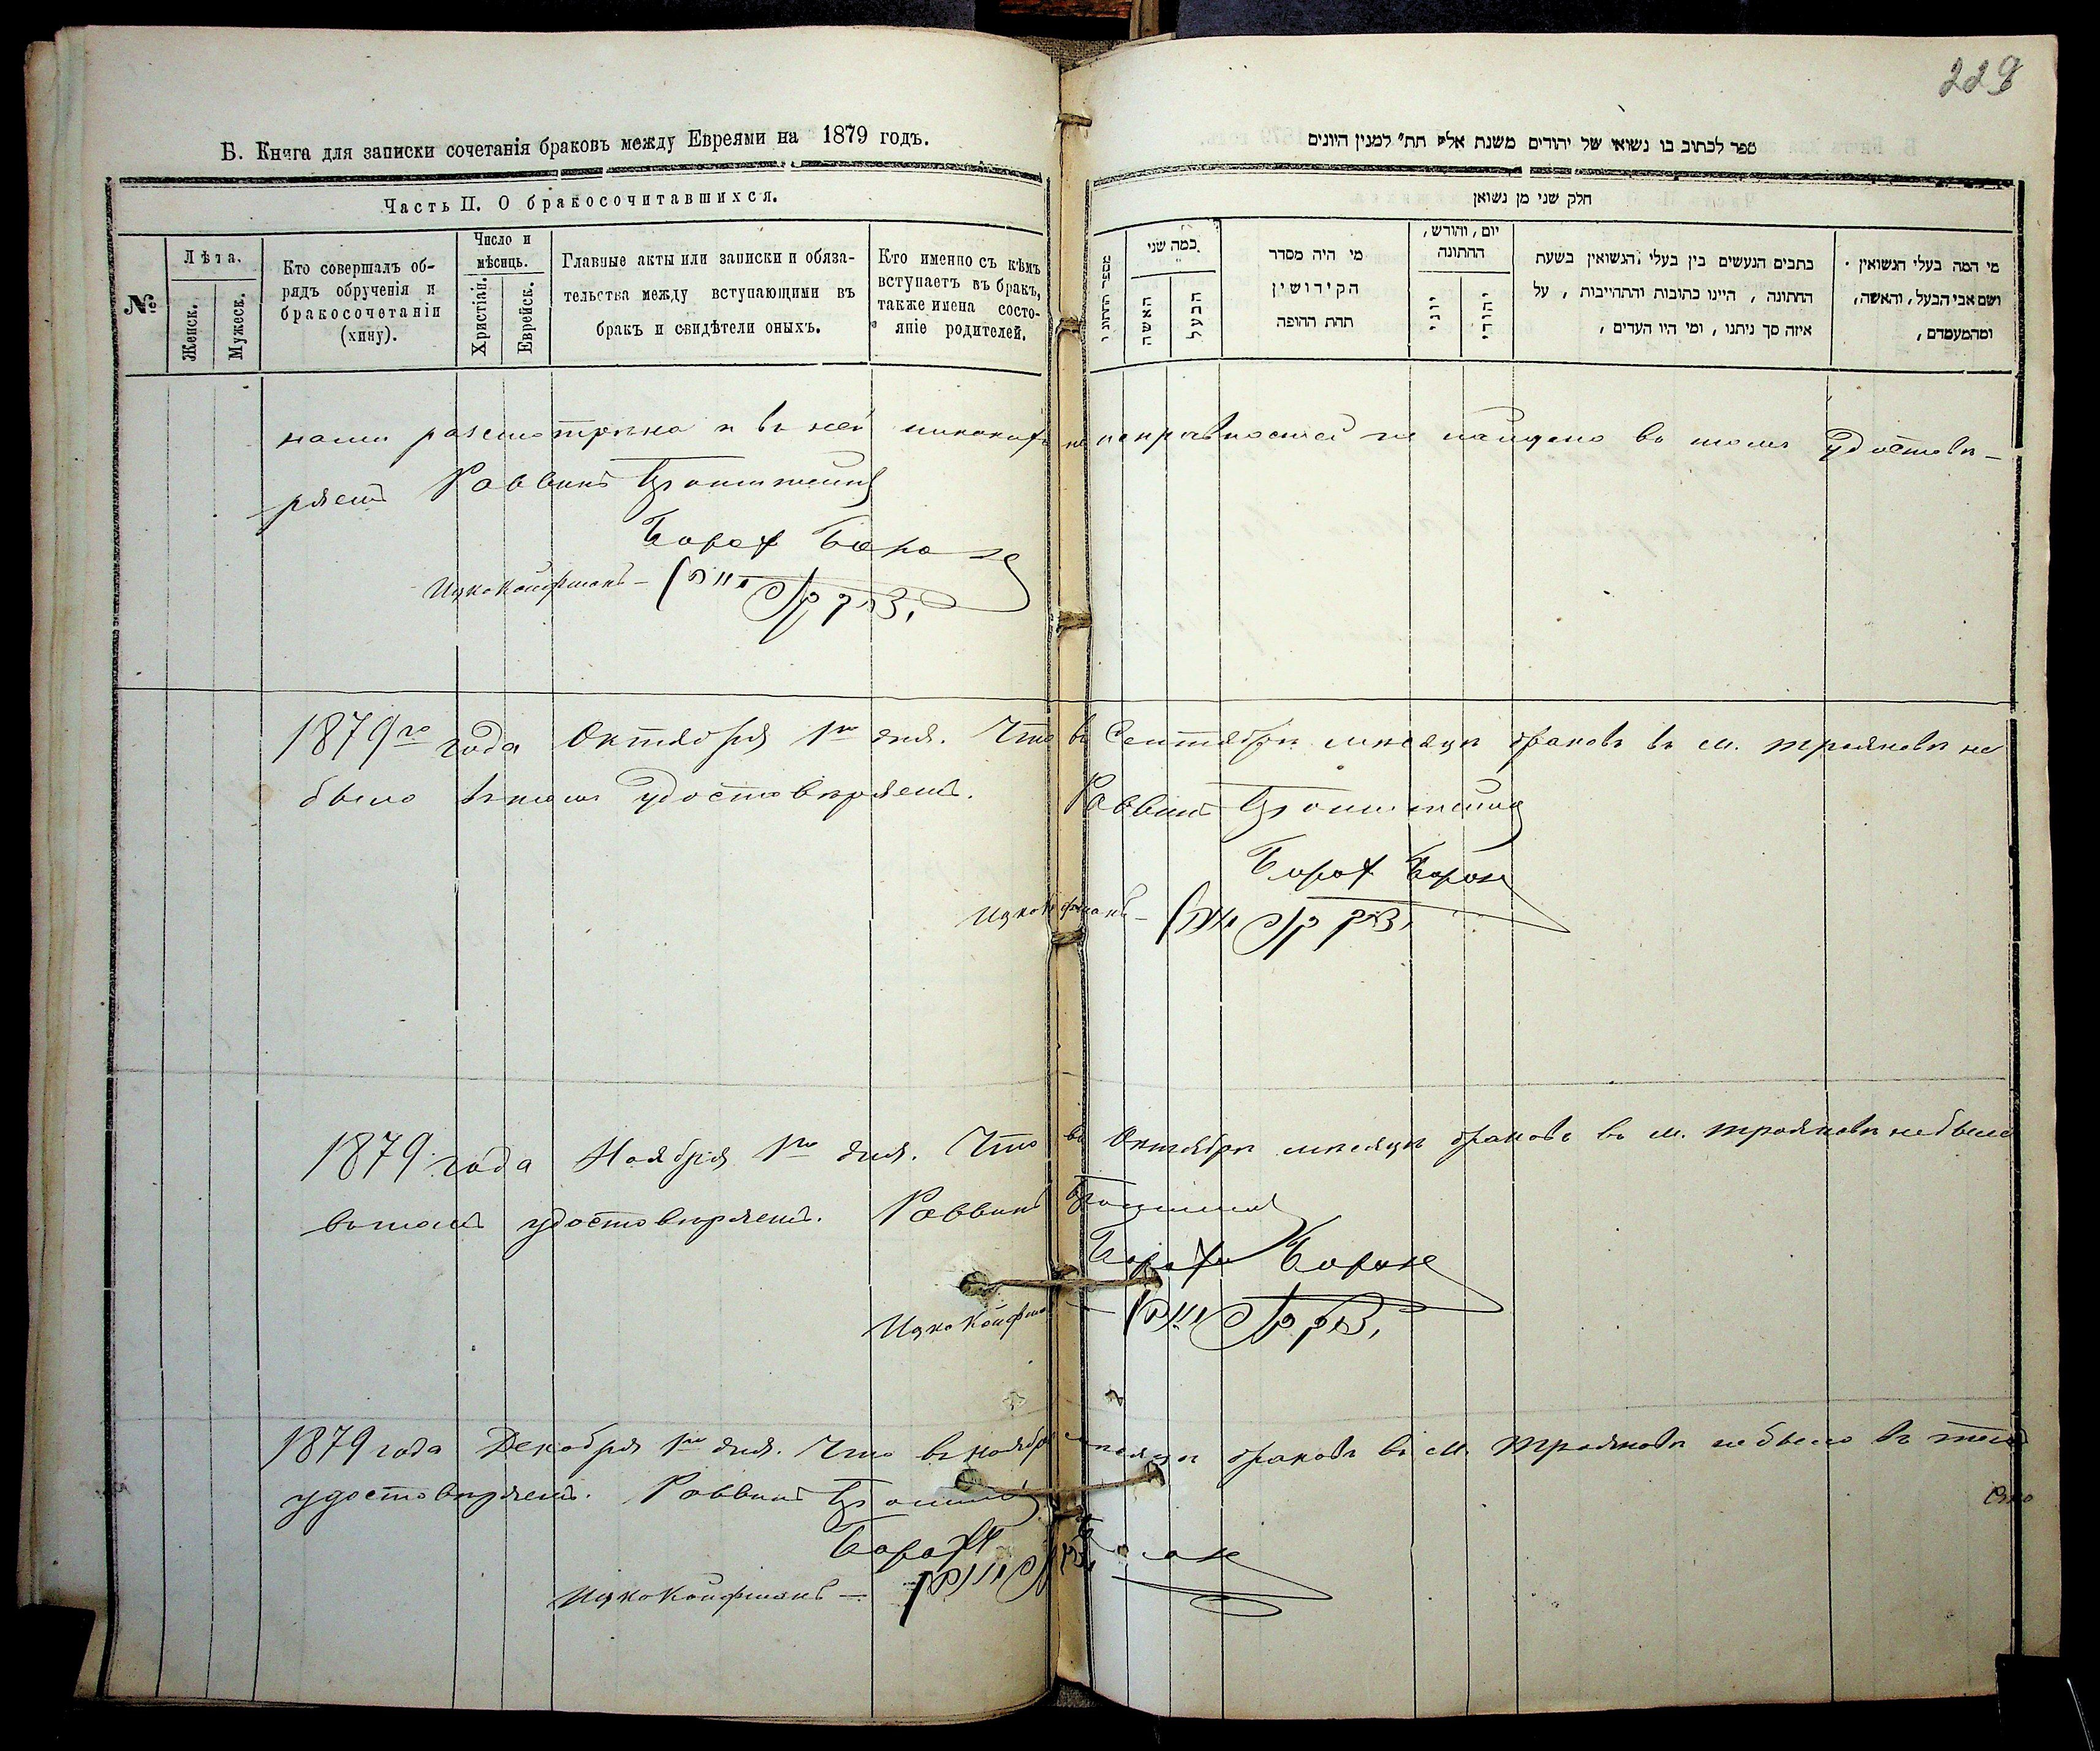 229
Б. Книга для записки сочетанія браковъ между Евреями на 1879 годъ.
Часть II. О бракосочитавшихся.
№
Лѣта.
Женск.
Мужеск.
Кто совершалъ об-
рядъ обрученія и
бракосочетаніи
(хину).
Число и
мѣсяць.
Христіан.
Еврейск.
Главные акты или записки и обяза-
тельства между вступающими въ
бракъ и свидѣтели оныхъ.
Кто именно съ кѣмъ
вступаетъ въ бракъ,
также имена состо-
яніе родителей.
ספר לכתוב בו נשואי של יהודים משנת אלף תת״ למנין היונים
חלק שני מן נשואן
כמה שני
האשה
הבעל
מי היה מסדר
הקידושין
תחת החופה
יום, והורש,
החתונה
יוני
יהודי
כתבים הנעשים בין בעלי הנשואין בשעת
החתונה, היינו כתובות והתהייבות, על
איזה סך ניתנו, ומי היו העדים,
מי המה בעלי הנשואין.
ושם אבי הבעל, והאשה,
ומהמעמדם,
нами разсмотрѣна и въ ней никакихъ неисправностей не найдено въ томъ удостовѣ-
ряемъ Раввинъ
Борох
Ицко Койфманъ —
1879го года Октября 1го дня. Что въ Сентябрѣ мѣсяцѣ браковъ въ м. Трояновѣ не
было въ томъ удостовѣряемъ. Раввинъ
Борох
Ицко
1879 года Ноября 1го дня. Что въ Октябрѣ мѣсяцѣ браковъ въ м. Трояновѣ не было
въ томъ удостовѣряемъ. Раввинъ
Борох
Ицко Койфма
1879 года Декабря 1го дня. Что въ ноябрѣ мѣсяцѣ браковъ въ м. Трояновѣ не было въ томъ
удостовѣряемъ. Раввинъ
Борох
Ицко Койфманъ —